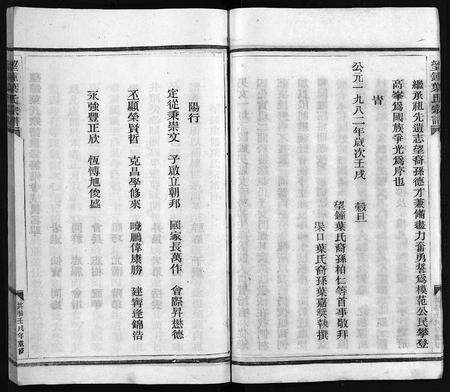 繼承祖先遺志望裔孫德才兼備盡力奮勇誓爲模范公民攀登
高峯爲國族爭光爲序也
旹
公元一九八二年歲次壬戌 穀旦
望鐘葉氏裔孫柏仁等首事敬拜
果口葉氏裔孫葉嘉榮執撰
陽行
定從秉崇文 子啟立朝邦 國家長萬作 會際昇懋德
丕顯榮賢哲 克昌學修來 曉鵬偉康勝 建齊逢錦浩
永強豐正欣 恆博旭俊盛
望鐘葉氏宗譜